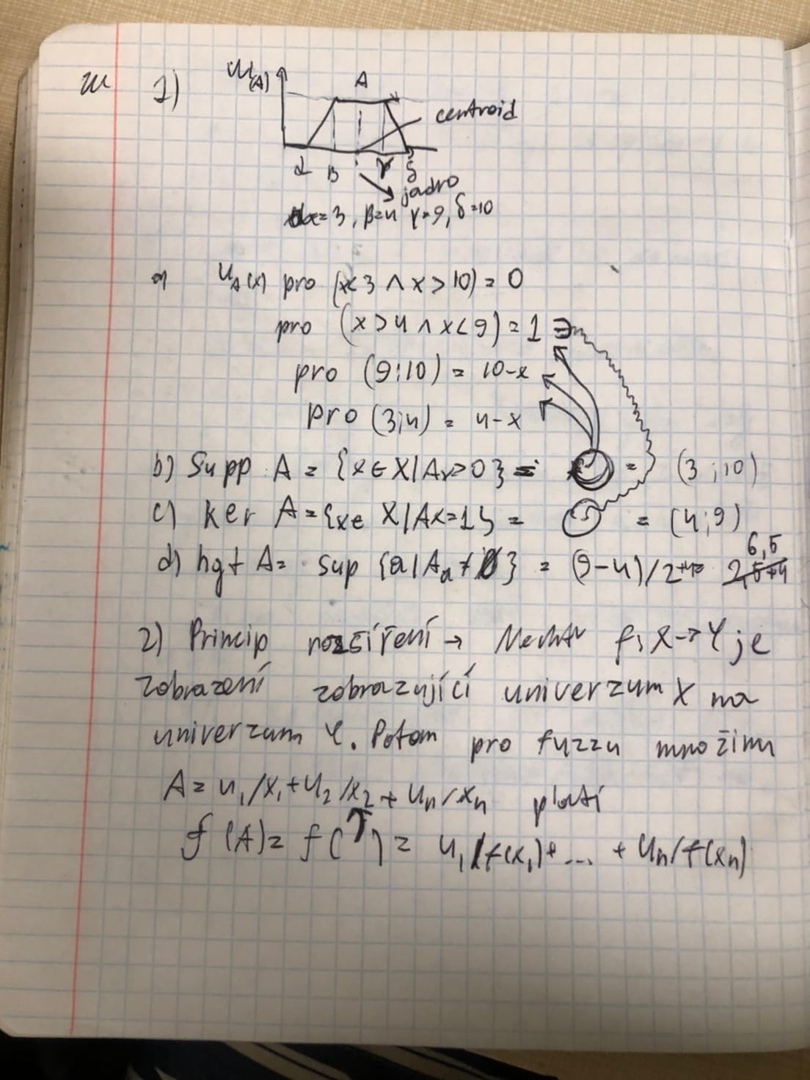 1)
μ(A)
A
centroid
α β γ δ
jadro
α=3, β=4 γ=9, δ=10
a) μA(x) pro (x<3 ∧ x>10) = 0
pro (x>4 ∧ x<9) = 1
pro (9;10) = 10-x
pro (3;4) = 4-x
b) Supp A = {x∈X|Ax>0} = = (3;10)
c) ker A={x∈ X|Ax=1} = = (4;9)
d) hgt A= sup {a|Aa≠∅} = (9-4)/2+4= 6,5
2) Princip rozšíření → Nechť f: X→Y je
zobrazení zobrazující univerzum X na
univerzum Y. Potom pro fuzzu množinu
A= u1/x1+u2/x2+un/xn platí
f(A)= f(↑) = u1/f(x1)+... + un/f(xn)